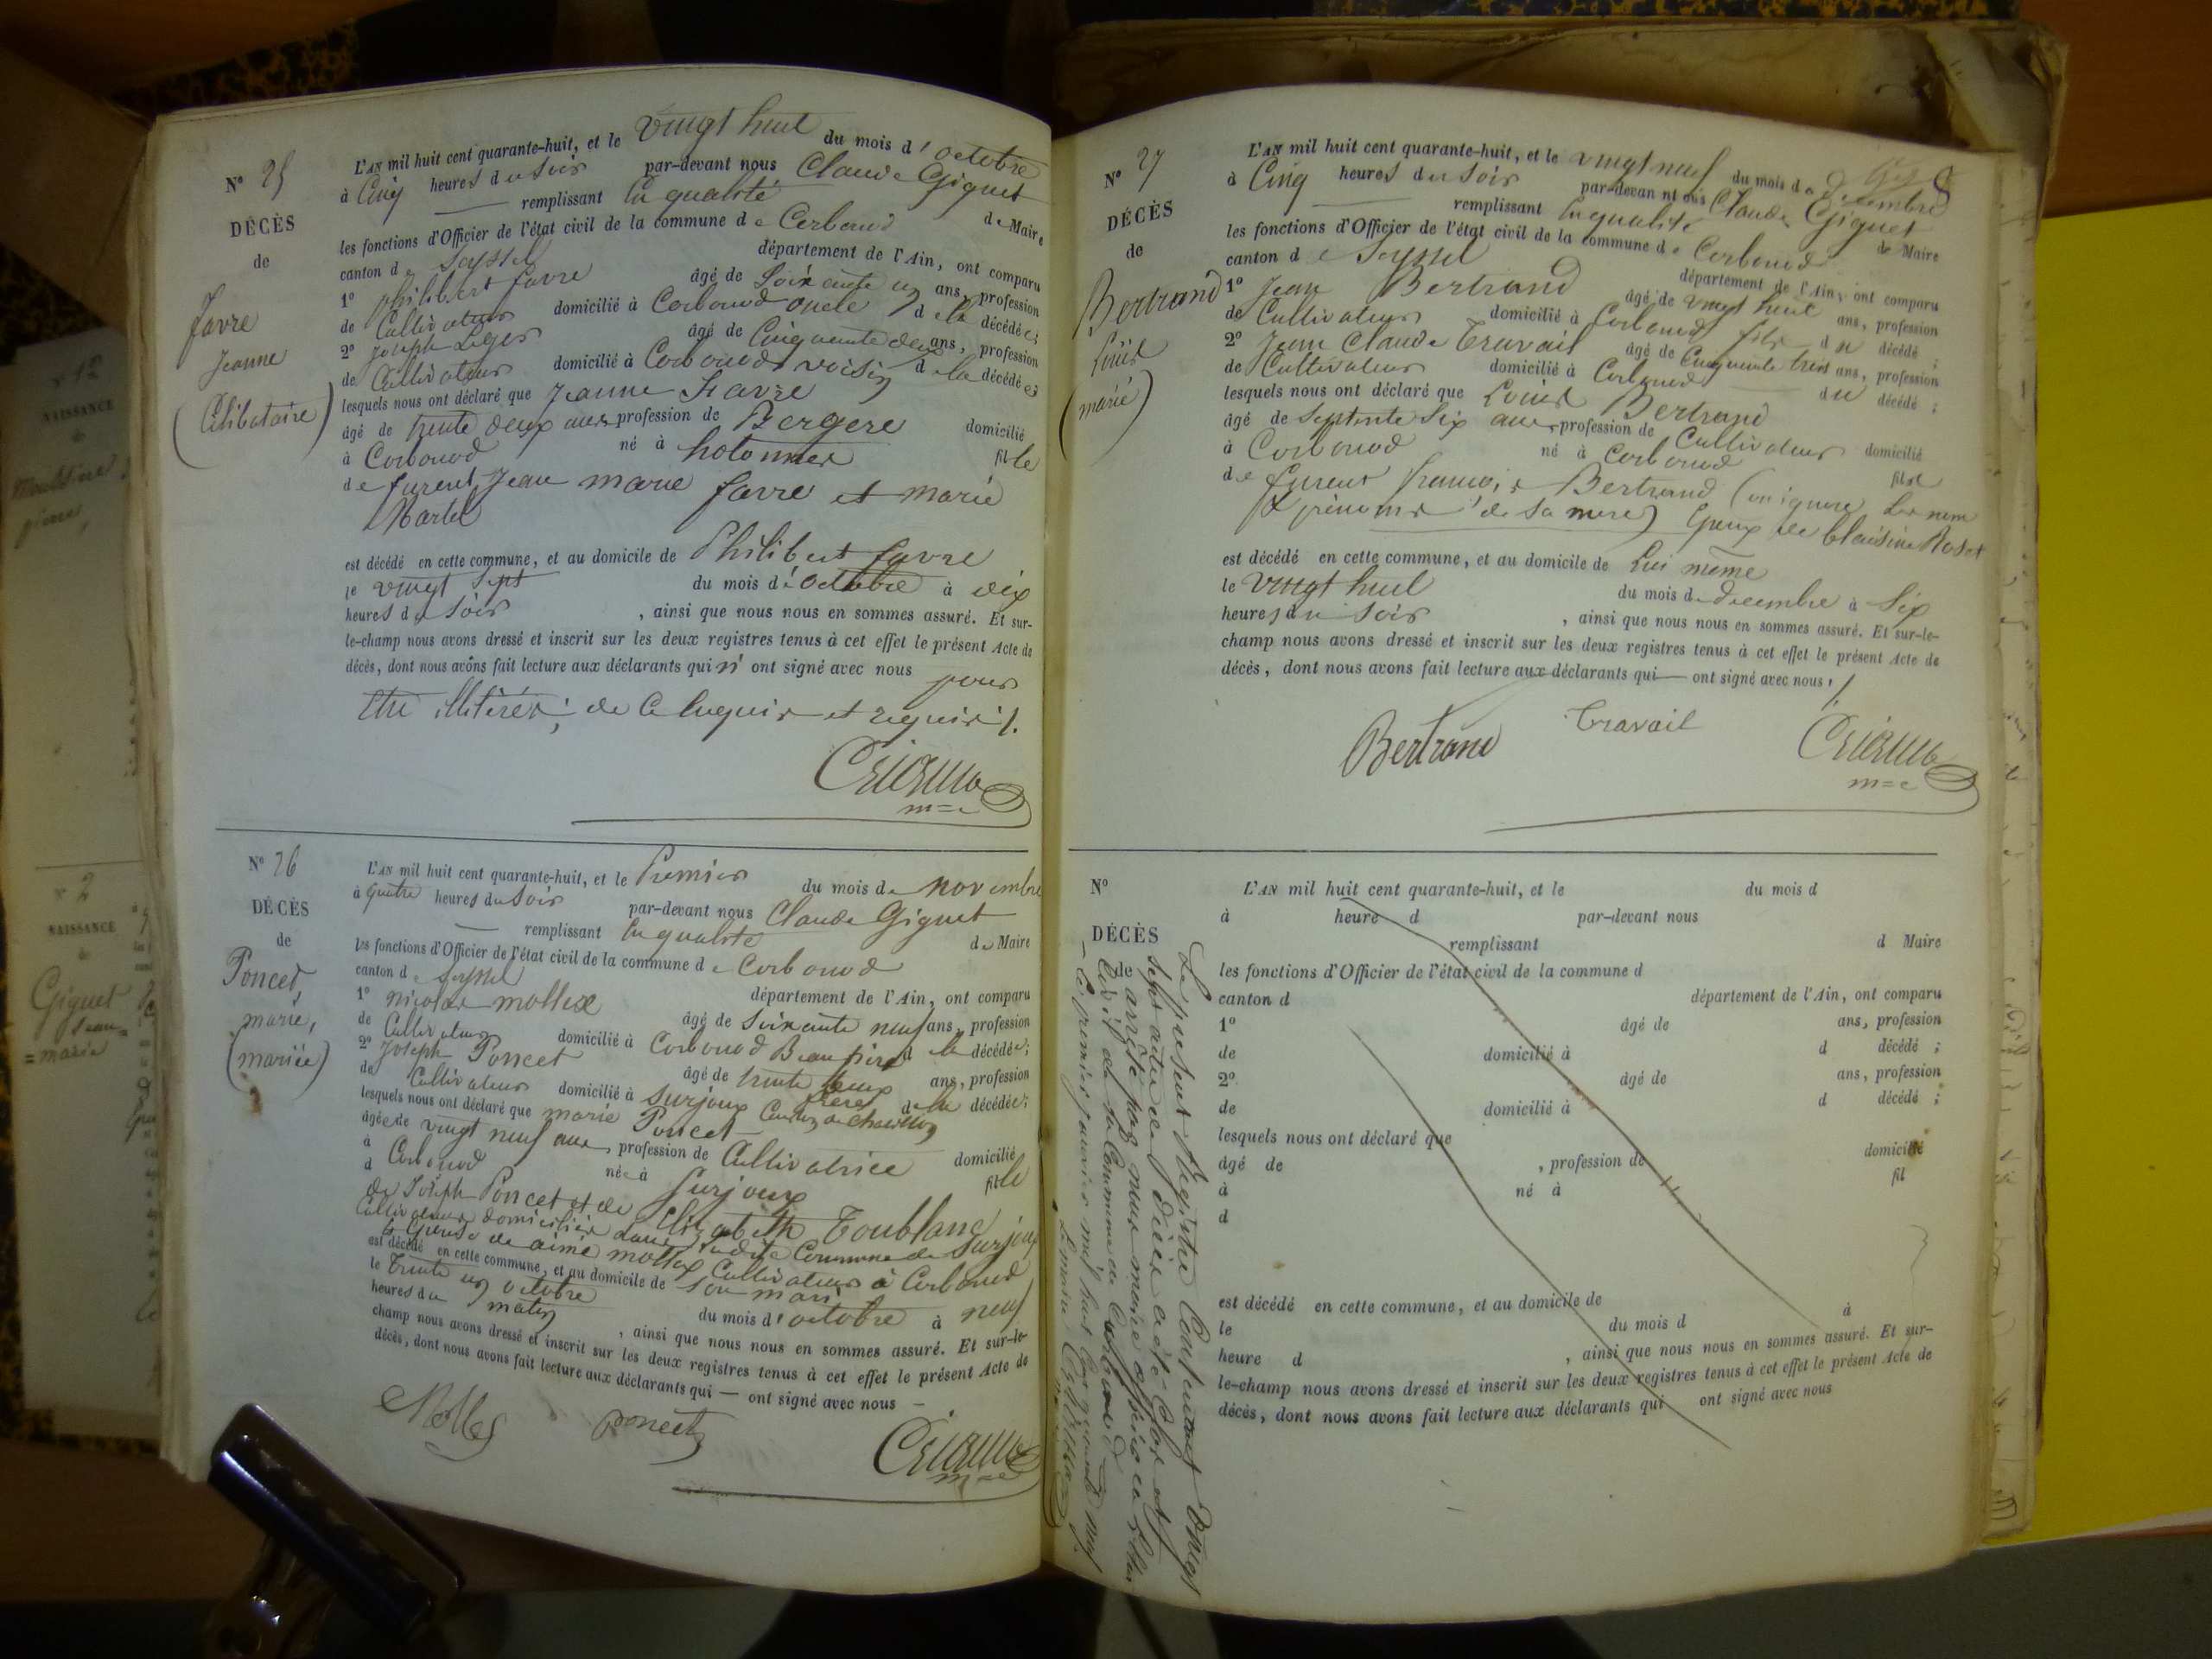 N° 25
DÉCÈS
de
favre
Jeanne
(Célibataire)
L'AN mil huit cent quarante-huit, et le vingt huit du mois d'octobre
à Cinq heures du soir par-devant nous Claude Giguet
remplissant en qualité de Maire
les fonctions d'Officier de l'état civil de la commune de Corbonod
canton de Seyssel département de l'Ain, ont comparu
1° philibert favre âgé de Soixante un ans, profession
de Cultivateur domicilié à Corbonod oncle de la décédée;
2° Joseph Léger âgé de Cinquante deux ans, profession
de Cultivateur domicilié à Corbonod voisin de la décédée;
lesquels nous ont déclaré que Jeanne Favre
âgé de trente deux ans profession de Bergere domicilié
à Corbonod né à hotonnes fille
de furent Jean marie favre et marie
Martel
est décédé en cette commune, et au domicile de Philibert favre
le vingt sept du mois d'octobre à dix
heures du soir, ainsi que nous nous en sommes assuré. Et sur-
le-champ nous avons dressé et inscrit sur les deux registres tenus à cet effet le présent Acte de
décès, dont nous avons fait lecture aux déclarants qui n'ont signé avec nous pour
être illitérés; de ce enquis et requis ./.
m=e
N° 26
DÉCÈS
de
Poncet,
marie,
(mariée)
L'AN mil huit cent quarante-huit, et le Premier du mois de novembre
à quatre heures du soir par-devant nous Claude Giguet
remplissant en qualité de Maire
les fonctions d'Officier de l'état civil de la commune de Corbonod
canton de Seyssel département de l'Ain, ont comparu
1° nicolas mollex âgé de Soixante neuf ans, profession
de Cultivateur domicilié à Corbonod Beau pere de la décédée;
2° Joseph Poncet âgé de trente deux ans, profession
de Cultivateur domicilié à Surjoux Canton de Chatillon frere de la décédée;
lesquels nous ont déclaré que marie Poncet
âgée de vingt neuf ans, profession de Cultivatrice domicilié
à Corbonod née à Surjoux fille
de Joseph Poncet et de Elizabeth Toublanc
Cultivateurs domiciliés dans ladite Commune de Surjoux
Epouse de aimé mollex Cultivateur à Corbonod
est décédé en cette commune, et au domicile de Son mari
le trente un octobre du mois d'octobre à neuf
heures du matin, ainsi que nous nous en sommes assuré. Et sur-le-
champ nous avons dressé et inscrit sur les deux registres tenus à cet effet le présent Acte de
décès, dont nous avons fait lecture aux déclarants qui — ont signé avec nous —
Mollex Poncet
m=e
N° 27
DÉCÈS
de
Bertrand
Louis
(marié)
L'AN mil huit cent quarante-huit, et le vingt neuf du mois de decembre
à Cinq heures du Soir par-devant nous Claude Giguet
remplissant en qualité de Maire
les fonctions d'Officier de l'état civil de la commune de Corbonod
canton de Seyssel département de l'Ain, ont comparu
1° Jean Bertrand âgé de vingt huit ans, profession
de Cultivateur domicilié à Corbonod fils du décédé;
2° Jean Claude Travail âgé de Cinquante trois ans, profession
de Cultivateur domicilié à Corbonod du décédé;
lesquels nous ont déclaré que Louis Bertrand
âgé de Septente Six ans, profession de Cultivateur domicilié
à Corbonod né à Corbonod fils
de furent françois Bertrand (on ignore les nom
& prénoms de sa mere) Epoux de Claisine Roset
est décédé en cette commune, et au domicile de Lui même
le vingt huit du mois de decembre à Six
heures du soir, ainsi que nous nous en sommes assuré. Et sur-le-
champ nous avons dressé et inscrit sur les deux registres tenus à cet effet le présent Acte de
décès, dont nous avons fait lecture aux déclarants qui — ont signé avec nous ./.
Bertrand Travail
m=e
N°
DÉCÈS
de
L'AN mil huit cent quarante-huit, et le du mois d
à heure d par-devant nous
remplissant d Maire
les fonctions d'Officier de l'état civil de la commune d
canton d département de l'Ain, ont comparu
1° âgé de ans, profession
de domicilié à d décédé;
2° âgé de ans, profession
de domicilié à d décédé;
lesquels nous ont déclaré que
âgé de, profession de domicilié
à né à fil
d
est décédé en cette commune, et au domicile de
le du mois d à
heure d, ainsi que nous nous en sommes assuré. Et sur-
le-champ nous avons dressé et inscrit sur les deux registres tenus à cet effet le présent Acte de
décès, dont nous avons fait lecture aux déclarants qui ont signé avec nous
Le présent Registre Contenant vingt
sept actes de décès a été Clos et
arrêté par nous maire officier de l'état
Civil de la Commune de Corbonod
Le premier janvier mil huit Cent quarante neuf
Le maire
N° 12
NAISSANCE
N° 2
NAISSANCE
Giguet
Jean=
=marie